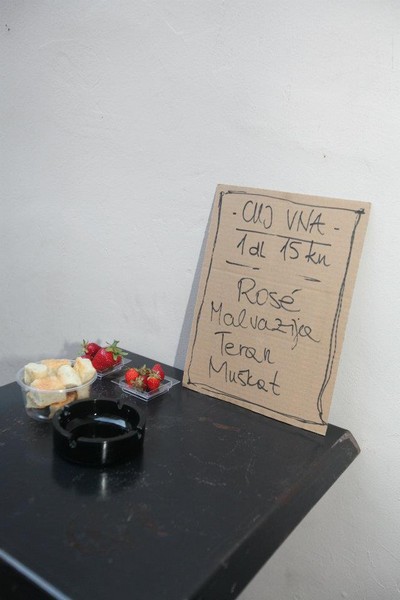 - CUJ VNA -
1 dl 15 kn
Rosé
Malvazija
Teran
Muškat